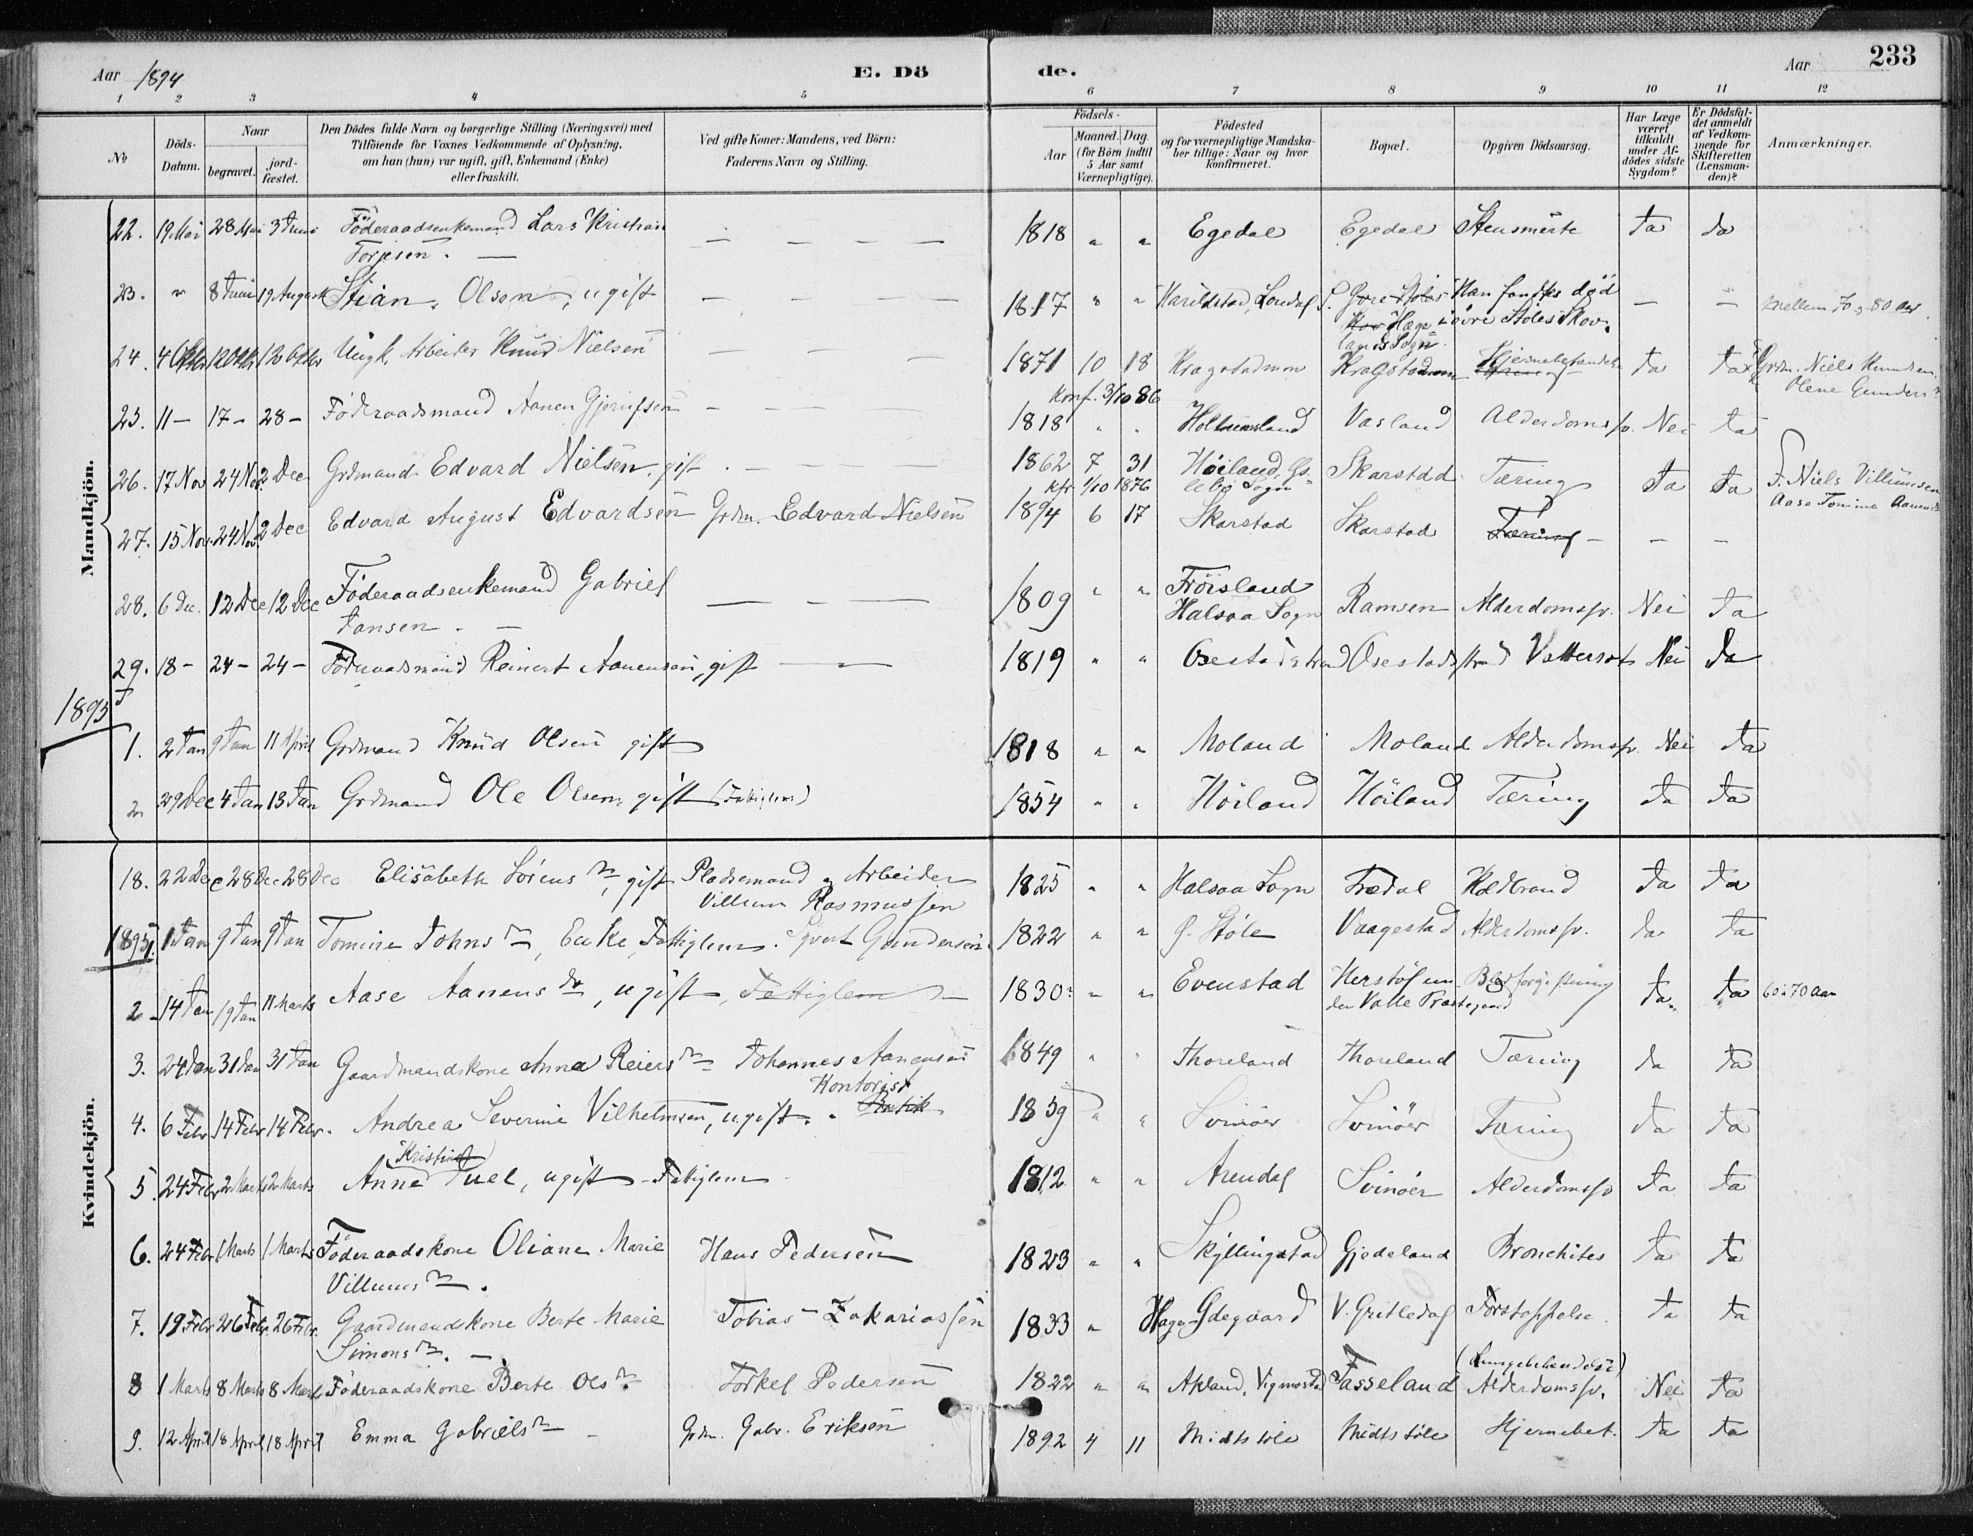 Aar 1894 E. Döde. Aar 233
1 2 3 4 5 6 7 8 9 10 11 12
No Döds-Datum. Naar begravet. jordfæstet. Den Dödes fulde Navn og borgerlige Stilling (Næringsvei) med Tilföiende for Voxnes Vedkommende af Oplysning, om han (hun) var ugift, gift, Enkemand (Enke) eller fraskilt. Ved gifte Koner: Mandens, ved Börn: Faderens Navn og Stilling. Födsels- Aar Maaned. Dag. (for Börn indtil 5 Aar samt Værnepligtige). Födested og for værnepligtige Mandskaber tillige: Naar og hvor konfirmeret. Bopæl. Opgiven Dödsaarsag. Har Læge været tilkaldt under Afdödes sidste Sygdom? Er Dödsfaldet anmeldt af Vedkommende for Skifteretten (Lensmanden)? Anmærkninger.
Mandkjön.
22. 19 Mai 28 Mai 3 Juni Föderaadsenkemand Lars Kristian — — — — 1818 " " Egedal Egedal Stensmerte Ja Ja
Torjesen. —
23. " 8 Juni 19 August Stian Olsen, ugift — — — — 1817 " " Han fandtes död — — mellem 70 og 80 Aar
i övre Stöles Skov.
24. Ungk. Arbeider Knud Nielsen 1871 10 18 Kragstadmon Kragstadmon Ja Ja Grdm. Niels Knudsen
Konf. 3/10 86 Olene Gunders
25. 11 — 17 — 28 — Föderaadsmand Aanen — — — — 1818 " " Holmesland Vasland Alderdomssv. Nei Ja
26. 17 Nov 24 Nov 2 Dec Grdmand Edvard Nielsen, gift — — — 1862 7 31 Höiland, Skarstad Tæring Ja Ja F. Niels Villumsen
kfr 1/10 1876 Sogn Aase
27. 15 Nov 24 Nov 2 Dec Edvard August Edvardsen Grdm. Edvard Nielsen 1894 6 17 Skarstad Skarstad Tæring — — —
28. 6 Dec. 12 Dec 12 Dec Föderaadsenkemand Gabriel — — — 1809 " " Fröisland Ramsen Alderdomssv. Nei Ja
Jansen. — Halsaa Sogn
29. 18 — 24 — 24 — Föderaadsmand Reinert Aanensen, gift — — 1819 " " Osestadstrand Osestadstrand Vattersot Nei Ja
1895
1. 2 Jan 9 Jan 11 April Grdmand Knud Olsen gift 1818 " " Moland Moland Alderdomssv. Nei Ja
2 29 Dec 4 Jan 13 Jan Grdmand Ole Olsen, gift (Fattiglem) 1854 " " Höiland Höiland Tæring Ja Ja
Kvindekjön.
18. 22 Dec 28 Dec 28 Dec Elisabeth Sörensdr, gift Pladsemand og Arbeider 1825 " " Halsaa Sogn Trædal Koldbrand Ja Ja
Villum Rasmussen
1895 1. 1 Jan 9 Jan 9 Jan Tomine Johnsdr, Enke, Fattiglem. Sivert Gundersen 1822 " " Ö. Stöle Vaagestad Alderdomssv. Ja Ja
2 14 Jan 19 Jan 11 Marts Aase Aanensdr, ugift, Fattiglem — 1830? " " Evenstad Blodforgiftning Ja. Ja 60 à 70 Aar
Valle Præstegaard
3. 24 Jan 31 Jan 31 Jan Gaardmandskone Anna Reiersdr Johannes Aanensen 1849 " " Thoreland Thoreland Tæring Ja Ja
Kontorist
4. 6 Febr 14 Febr 14 Febr. Andrea Severine Vilhelmsen, ugift. 1859 " " Svinöer Svinöer Tæring Ja Ja
Kristine
5. 24 Febr 2 Marts 2 Marts Anne Juel, ugift — Fattiglem 1812 " " Arendal Svinöer Alderdomssv Ja Ja
6. 24 Febr 1 Marts 1 Marts Föderaadskone Oliane Marie Hans Pedersen 1823 " " Skyllingstad Gjedeland Bronchites Ja Ja
Villumsdr.
7. 19 Febr 26 Febr 26 Febr. Gaardmandskone Berte Marie Tobias Zakariassen 1833 " V. Gritledal Forstoppelse Ja Ja
Simonsdr. —
8 1 Marts 8 Marts 8 Marts Föderaadskone Berte Olsdr. Torkel Pedersen 1822 " " Vigmostad Fasseland Alderdomssv. Nei Ja
9. 12 April 18 April 18 April Emma Gabrielsdr — Grdm. Gabr. Eriksen 1892 4 11 Midtstöle Midtstöle Hjernebet. Ja Ja